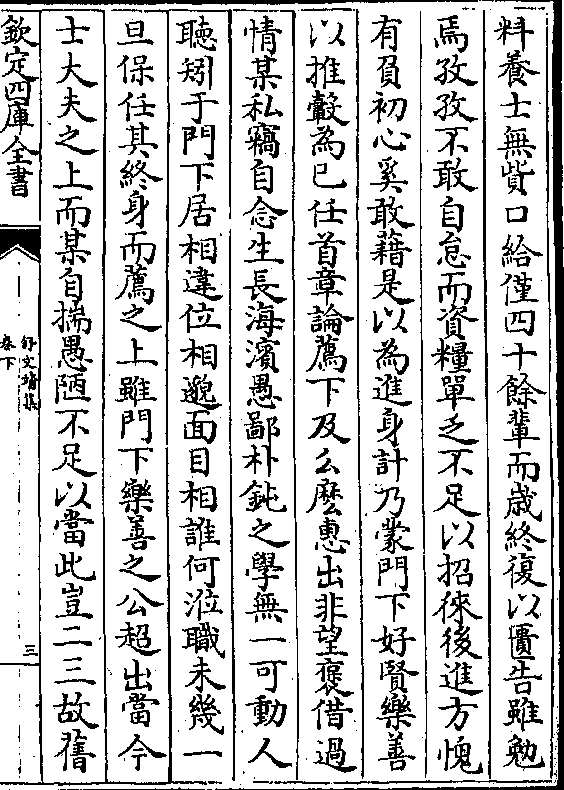 料養士無貲口給僅四十餘輩而歲終復以匱告雖勉
焉孜孜不敢自怠而資糧單乏不足以招徠後進方愧
有負初心奚敢藉是以為進身計乃蒙門下好賢樂善
以推轂為已任首章論薦下及么麽惠出非望褒借過
情某私竊自念生長海濱愚鄙朴鈍之學無一可動人
聴矧于門下居相違位相邈面目相誰何涖職未幾一
旦保任其終身而薦之上雖門下樂善之公超出當今
士大夫之上而某自揣愚陋不足以當此豈二三故舊
欽定四庫全書
舒文靖集
卷下
三